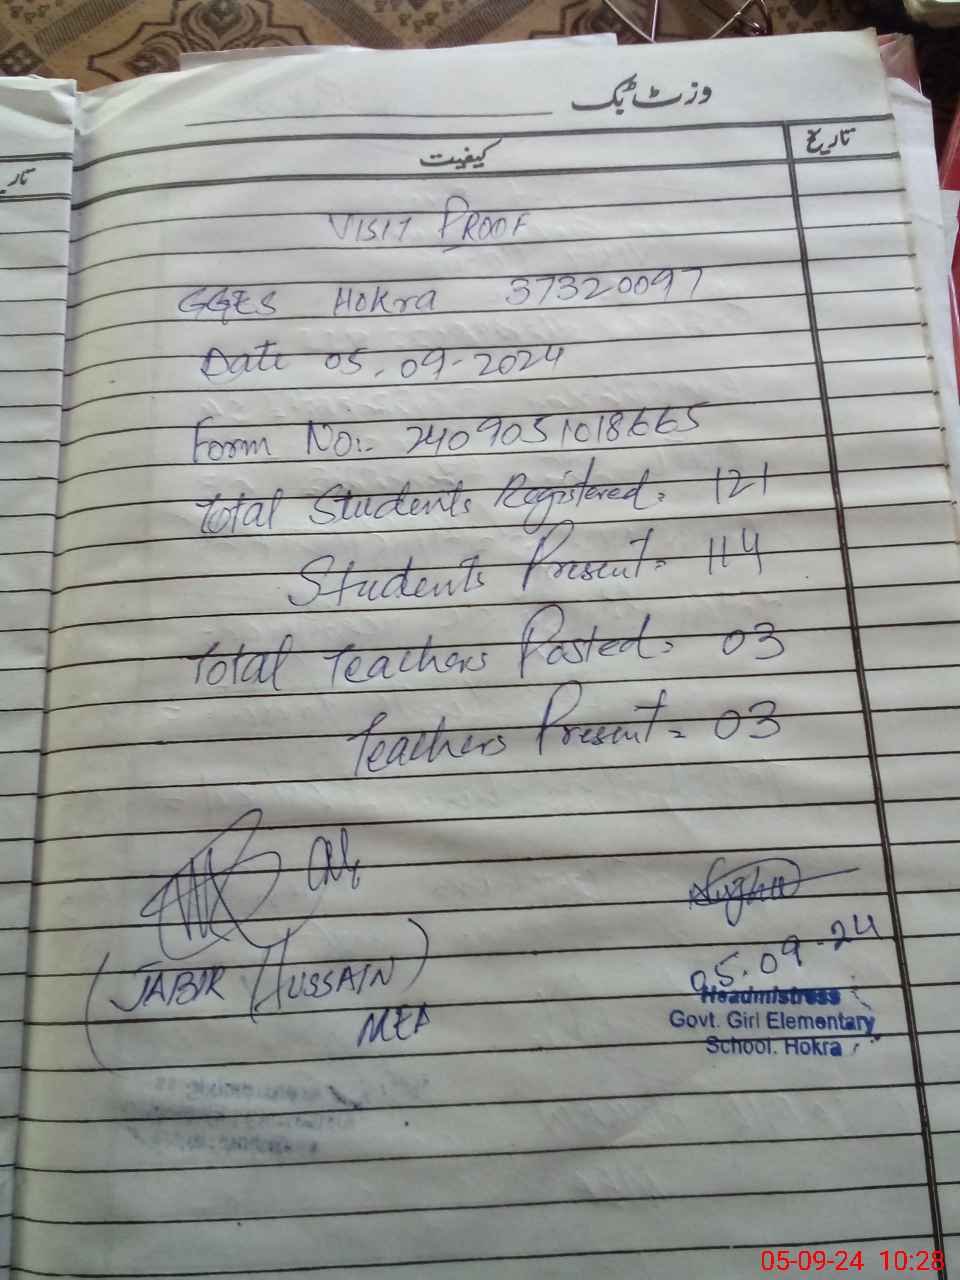 وزٹ بک
تاریخ
کیفیت
VISIT PROOF
GGES Hokra 37320097
Date 05.09-2024
Form No:- 2409051018665
Total Students Registered = 121
Students Present = 114
Total Teachers Posted = 03
Teachers Present = 03
(JABIR HUSSAIN)
MEA
05.09-24
Headmistress
Govt. Girl Elementary
School. Hokra
05-09-24 10:28